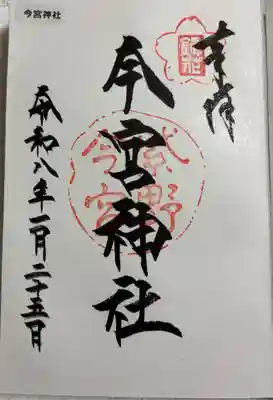 奉拝
今宮神社
令和八年一月二十五日
今宮神社
紫野
今宮